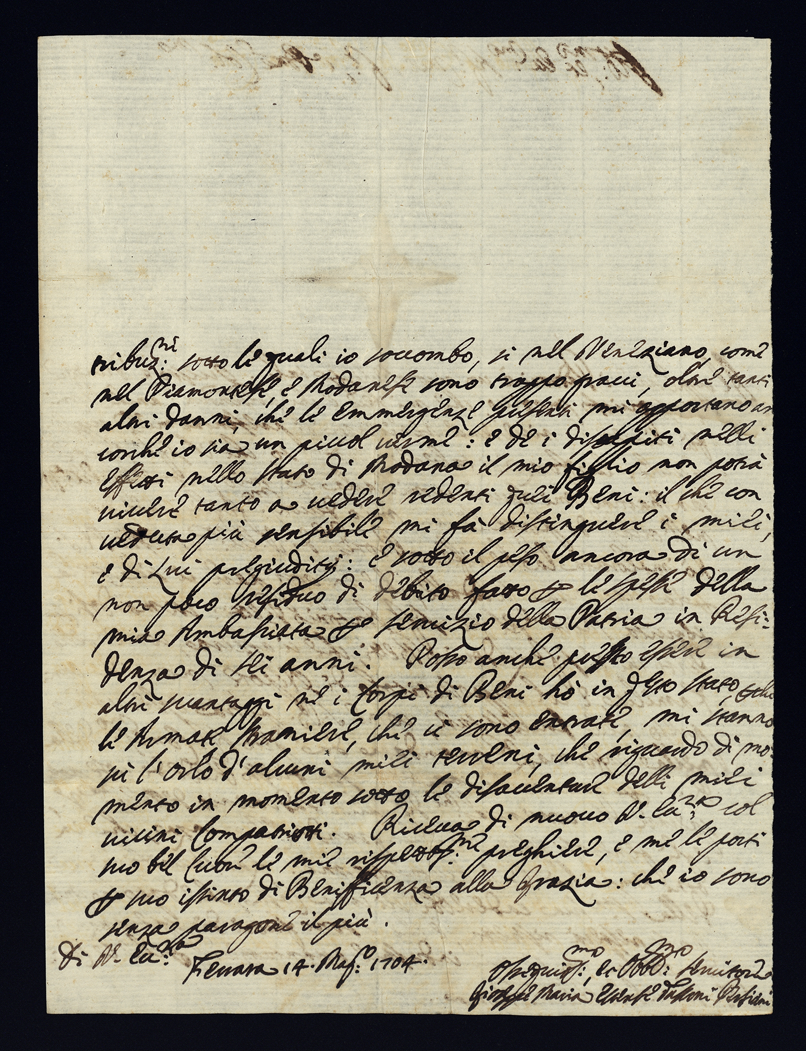 tribuz:ni sotto le quali io soccombo, si nel Veneziano, come
nel Piamontese, e Modanese sono troppo pacci, oltre tanti
altri danni, che le Emmergenze presenti mi apportano an
corche io sia un piccol verme: e de i disar piti nelli
effetti nello stato di Modana il mio figlio non potrà
vivere tanto a vedere redenti quei Beni: il che con
veduta più sensibile mi fà distinguere i miei,
e di Lui pregiuditij: e sotto il peso ancora di un
non poco residuo di debito fatto p le spese della
mia Ambasciata p servizio della Patria in Resi:
denza di sei anni. Posso anche presto essere in
altri svantaggi nè i Corpi di Beni hò in questo stato,
le Armate straniere, che ci sono entrate, mi stanno
sù l'orlo d'alcuni miei terreni, che riguardo di mo
mento in momento sotto le disavventure delli miei
vicini Compatriotti. Riceva di nuovo V. Ecc:za col
suo bel Cuore le mie rispettos:me preghiere, e me le porti
p suo istinto di Benefficenza alla grazia: che io sono
senza paragone il più.
Di V. Ecc:za
Ferrara 14. Mag:o 1704.
Ossequios:mo, et Obb:mo servitore
Gioseppe Maria Estense Tassoni